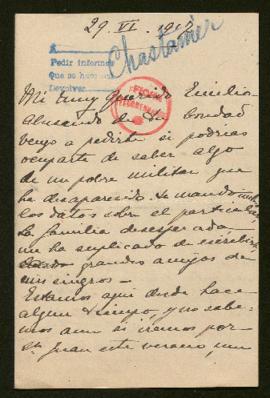 29. VI. 1917
A
Pedir informes
Que se busque
Devolver
Chastanier
Mi muy Querido Emilio.
Abusando de tu bondad
vengo a pedirte si podrias
ocuparte de saber algo
de un pobre militar que
ha desaparecido. Te mando
los datos sobre el particular,
La familia desesperada,
me ha suplicado de escribirte,
grandes amigos de
mis suegros —
Estamos aqui desde hace
algun tiempo, y no sabe-
mos aun si iremos por
Sn Juan este verano, un